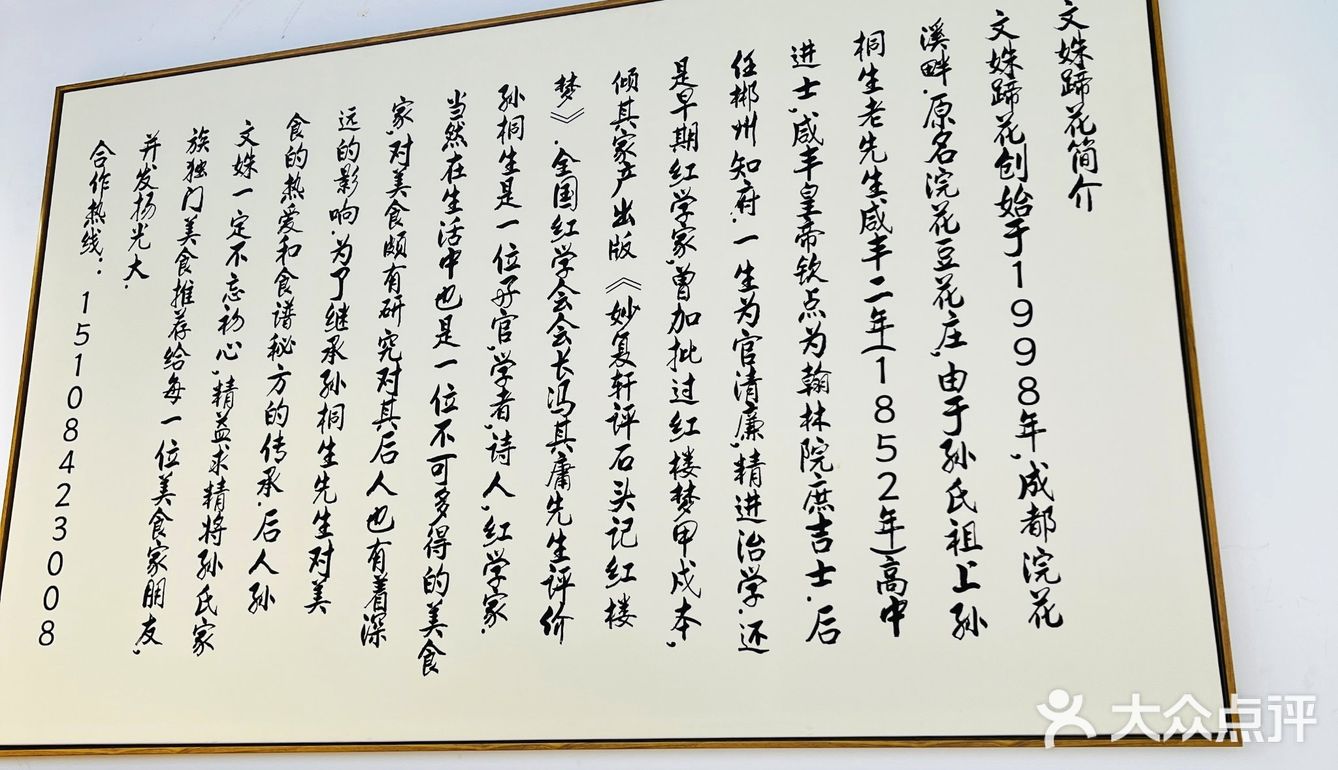 文姝蹄花简介
文姝蹄花创始于1998年,成都浣花
溪畔.原名浣花豆花庄,由于孙氏祖上孙
桐生老先生咸丰二年(1852年)高中
进士,咸丰皇帝钦点为翰林院庶吉士.后
任郴州知府.一生为官清廉,精进治学.还
是早期红学家,曾加批过红楼梦甲戌本,
倾其家产出版《妙复轩评石头记红楼
梦》.全国红学会会长冯其庸先生评价
孙桐生是一位好官,学者,诗人,红学家.
当然在生活中也是一位不可多得的美食
家,对美食颇有研究对其后人也有着深
远的影响.为了继承孙桐生先生对美
食的热爱和食谱秘方的传承.后人孙
文姝一定不忘初心,精益求精将孙氏家
族独门美食推荐给每一位美食家朋友,
并发扬光大.
合作热线:15108423008
大众点评